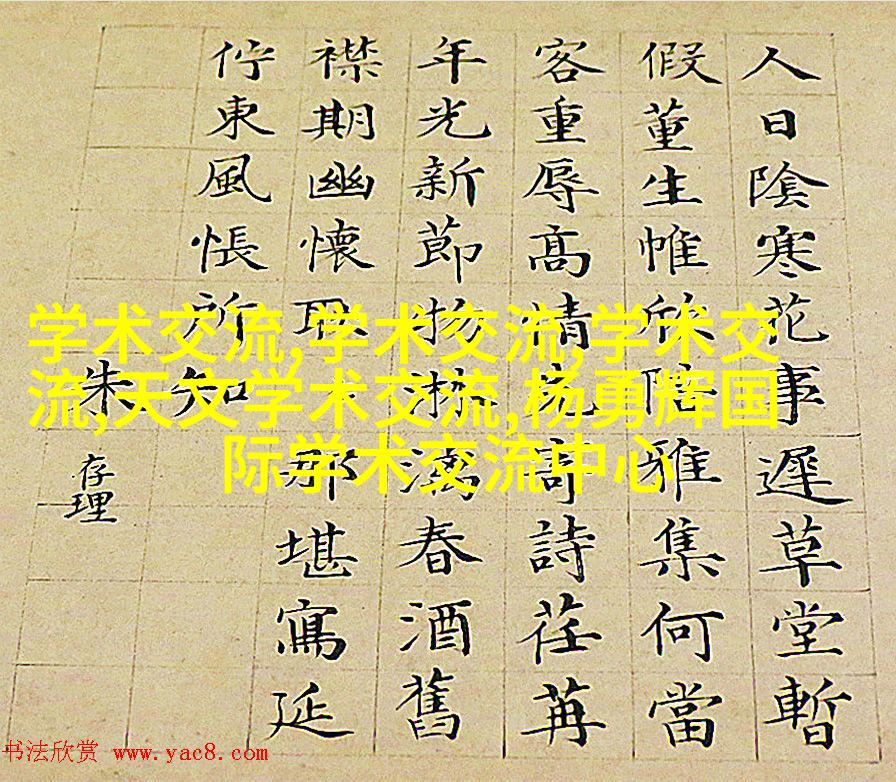 人日陰寒花事遲草堂暫
假董生帷欣陪雅集何當
客重辱高情寄詩荏苒
年光新節物淋漓春酒舊
襟期幽懷那堪寫延
佇東風悵所知
朱存理
学术交流,学术交流,学术交
流,天文学术交流,杨勇辉国
际学术交流中心
书法欣赏 www.yac8.com